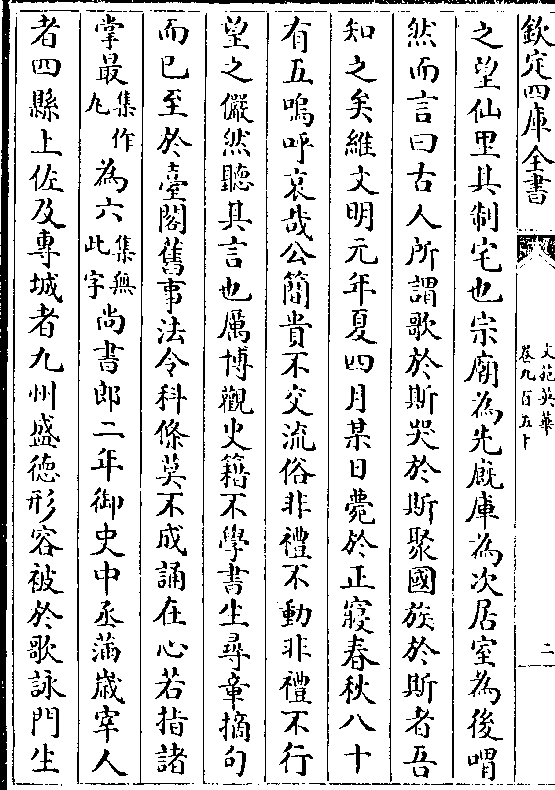 欽定四庫全書
文苑英華
卷九百五十
二
之望仙里其制宅也宗廟為先廐庫為次居室為後喟
然而言曰古人所謂歌於斯哭於斯聚國族於斯者吾
知之矣維文明元年夏四月某日薨於正寢春秋八十
有五嗚呼哀哉公簡貴不交流俗非禮不動非禮不行
望之儼然聽其言也厲博觀史籍不學書生尋章摘句
而已至於臺閣舊事法令科條莫不成誦在心若指諸
掌最集作九為六集無此字尚書郎二年御史中丞滿嵗宰人
者四縣上佐及專城者九州盛德形容被於歌詠門生